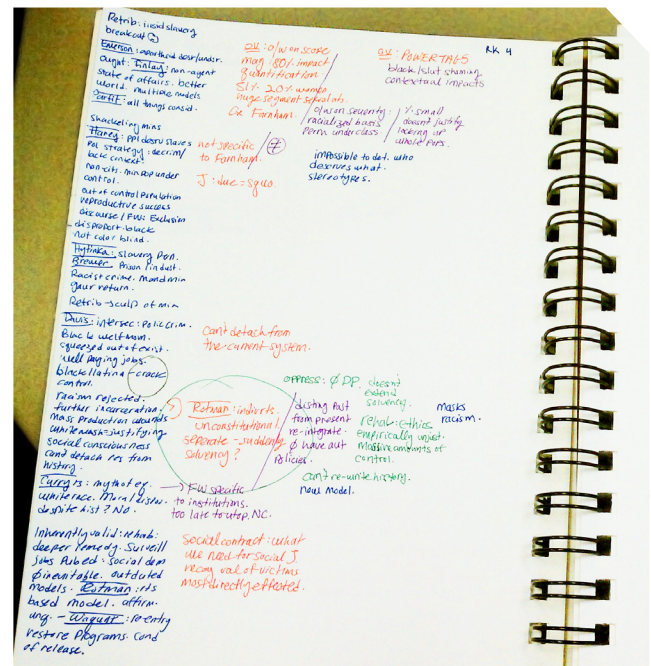 Retrib: insid slavery
breakout
Emerson: apartheid desr/under.
ought: Finlay: non-agent
state of affairs. better
world. multiple models
Partif: all things consid.
Shackeling mins
Haney: ppl desrv slaves
Pol strategy: decrim/
lack context
non-cits. min pop under
control.
out of control population
reproductive success
discourse / FW: Exclusion
disproport. black
not color blind.
slavery Pen.
Brewer: Prison / indust.
Racist crime. mand min
gaur return.
Retrib → sculp of min
Davis: intersec: polic crim.
Black welf mom.
squeezed out of exist.
well paying jobs.
black/latina → crack
control.
racism rejected.
further incarceration
mass production wounds
whitewash = justifying
social consciousness
can't detach res from
history.
Curry is: myth of ex.
white race. Moral exist
despite hist? No
Inherently valid: rehab:
deeper remedy. Surveill
jobs Pub ed: social dem
Ø inevitable. outdated
models. Rotman: rts
based model. affirm.
ung. - Waquar: re-entry
restore Programs. Cond
of release.
OV: o/w on score
mag: 80% impact
quantification
51% 20% women
huge segment
Ca Farnham.
not specific
to Farnham.
J: due = squo.
o/w on severity:
racialized basis
perm underclass
≠
% small
doesn't justify
locking up
whole purs.
impossible to det. who
deserves what.
stereotypes.
OV: POWERTAGS
black/slut shaming
contextual impacts
RK 4
can't detach from
the current system.
Rotman: indivrts.
unconstitutional.
seperate - sudden
solvency?
→ FW specific
to institutions.
too late to utop. NC.
oppress: Ø DP.
disting past
from present
re-integrate
Ø have out
Policies.
doesn't
extend
solvency.
rehab: ethics
empirically unjust.
Massive amounts of
control.
masks
racism.
can't re-write history.
new model.
social contract: what
we need for social J
recog val of victims
most directly effected.